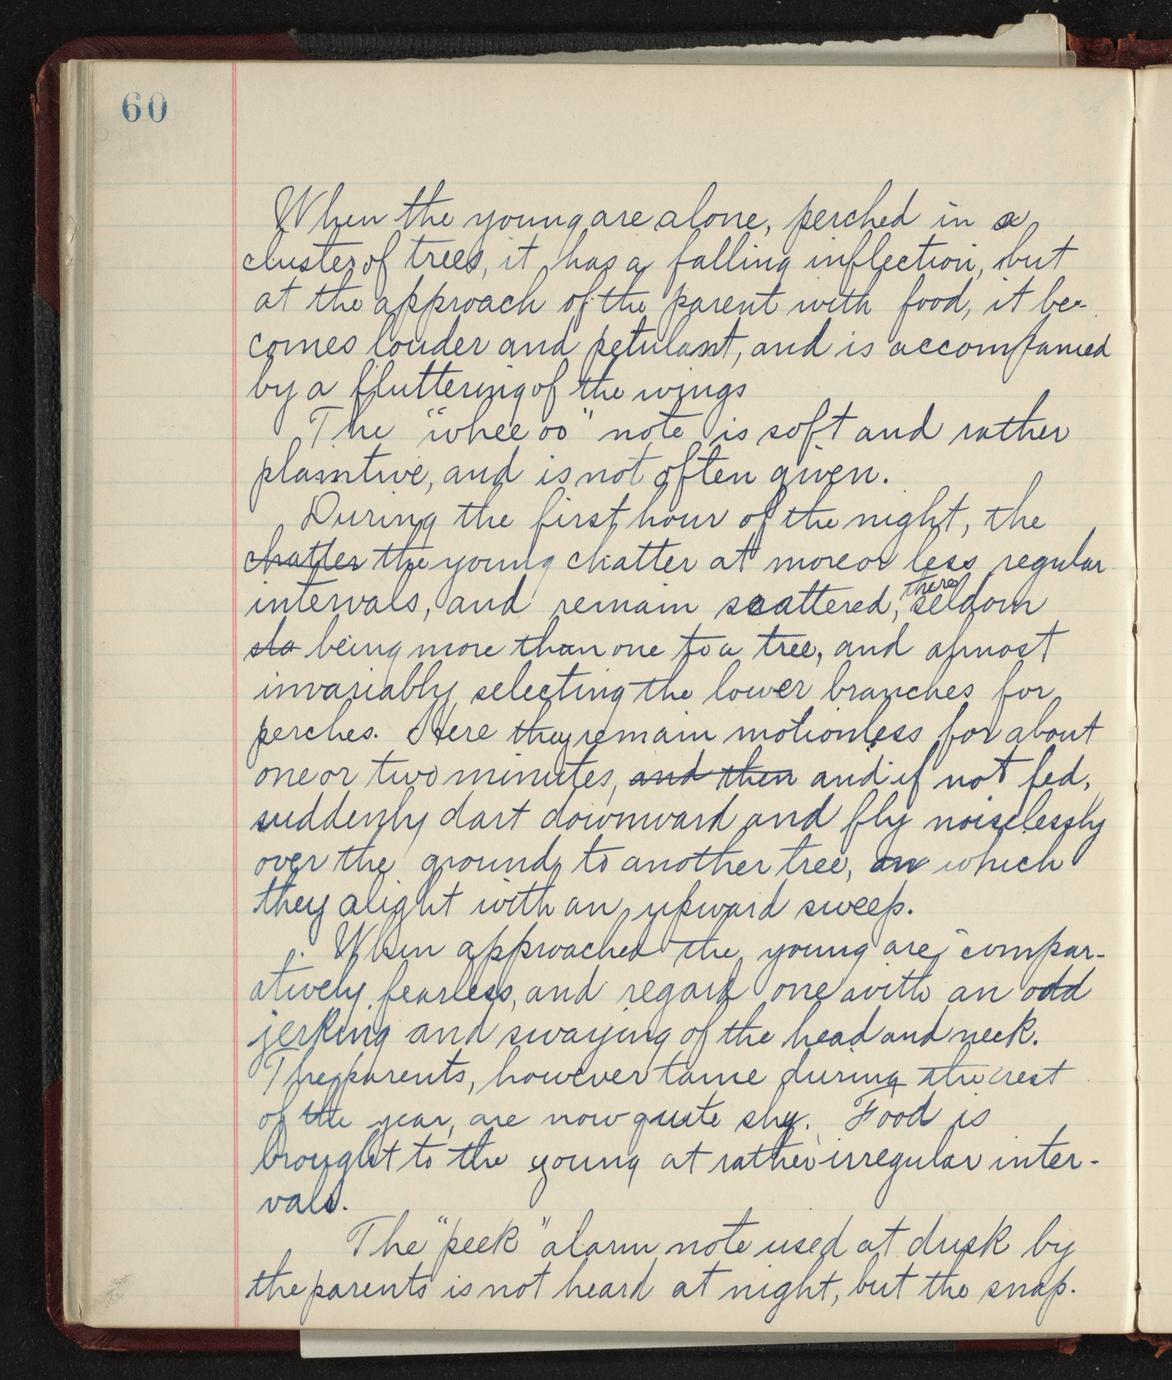 60
When the young are alone, perched in a
cluster of trees, it has a falling inflection, but
at the approach of the parent with food, it be-
comes louder and petulant, and is accompanied
by a fluttering of the wings
The "whee oo" note is soft and rather
plaintive, and is not often given.
During the first hour of the night, the
chatter the young chatter at more or less regular
intervals, and remain scattered, there seldom
sta being more than one to a tree, and almost
invariably selecting the lower branches for
perches. Here they remain motionless for about
one or two minutes, and then and if not fed,
suddenly dart downward and fly noiselessly
over the ground, to another tree, on which
they alight with an upward sweep.
When approached the young are compar-
atively fearless, and regard one with an odd
jerking and swaying of the head and neck.
The parents, however tame during the rest
of the year, are now quite shy. Food is
brought to the young at rather irregular inter-
vals.
The "peek" alarm note used at dusk by
the parents is not heard at night, but the snap.